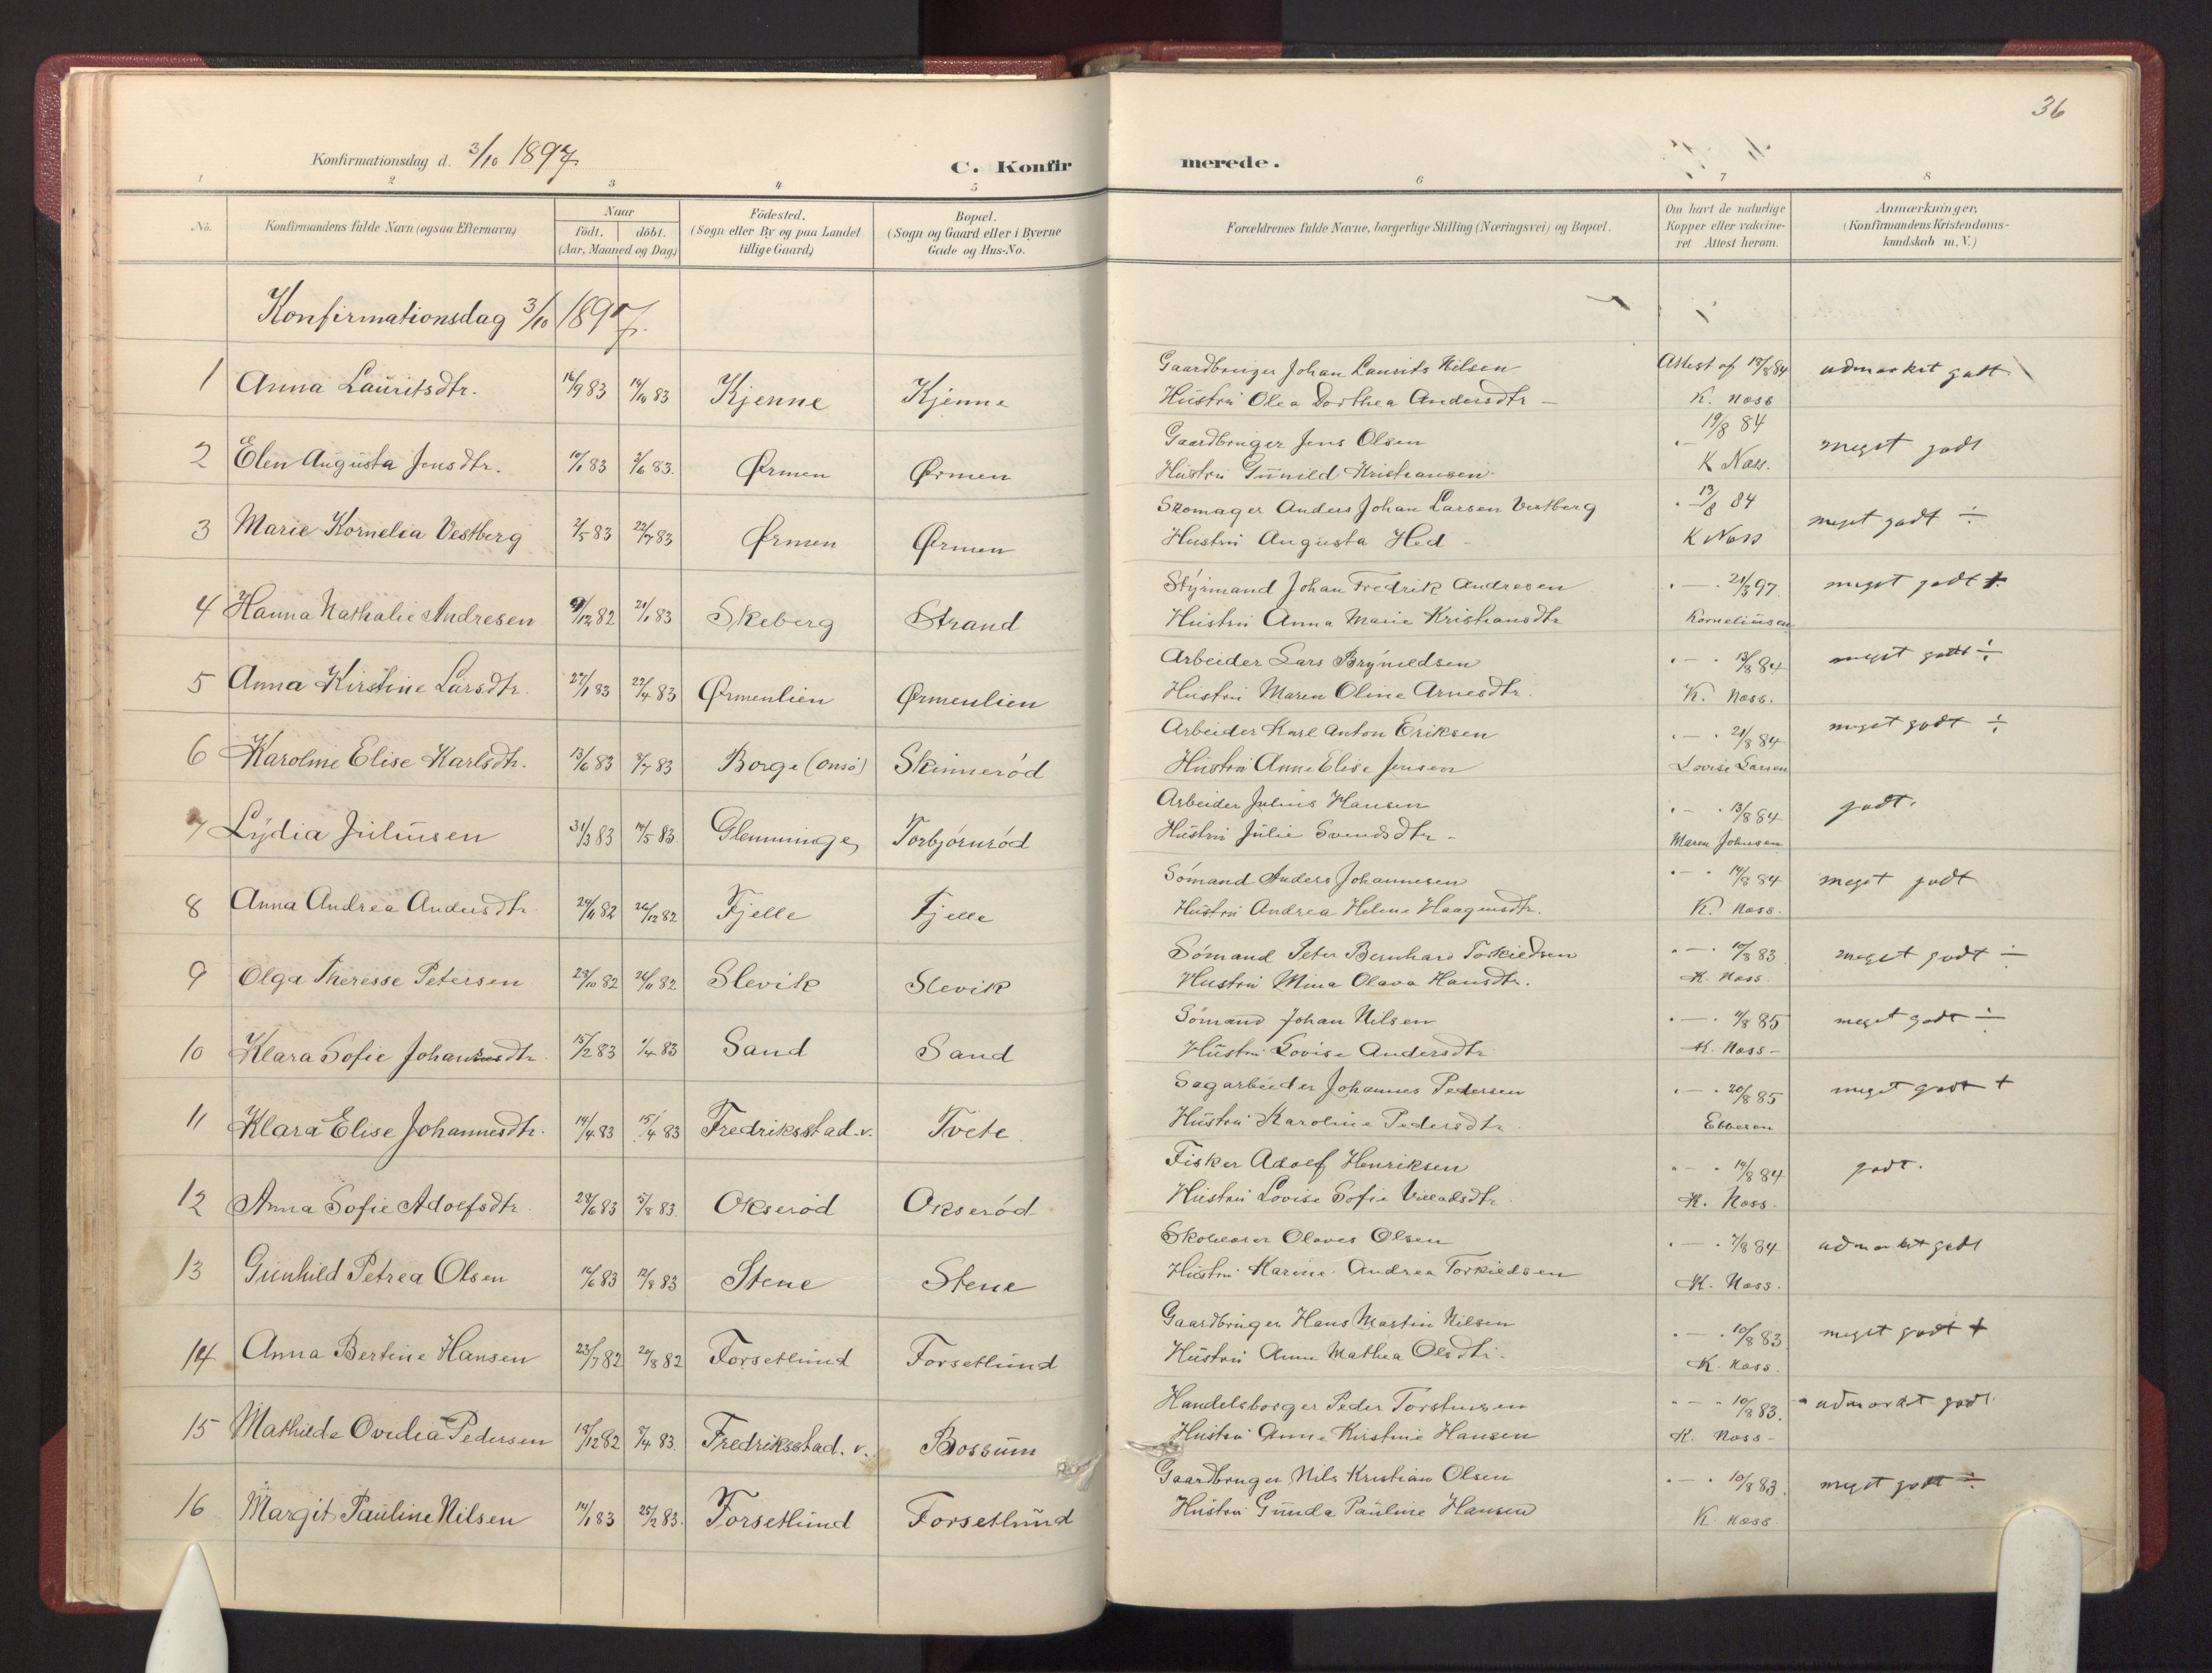 36
Konfirmationsdag d. 3/10 1897.
C. Konfirmerede.
1 2 3 4 5 6 7 8
No. Konfirmandens fulde Navn (ogsaa Efternavn) Naar födt. döbt. (Aar, Maaned og Dag) Födested. (Sogn eller By og paa Landet tillige Gaard) Bopæl. (Sogn og Gaard eller i Byerne Gade og Hus-No. Forældrenes fulde Navne, borgerlige Stilling (Næringsvei) og Bopæl. Om havt de naturlige Kopper eller vakcineret Attest herom. Anmærkninger. (Konfirmandens Kristendomskundskab m. V.)
Konfirmationsdag 3/10 1897.
1 Anna Lauritsdtr. 16/9 83 14/10 83 Kjenne Kjenne Gaardbruger Johan Laurits Nilsen Attest af 13/8 84 udmærket godt
Hustru Olea Dorthea Andersdtr – K. Næss
2 Elen Augusta Jensdtr. 83 3/6 83. Ørmen Ørmen Gaardbruger Jens Olsen 19/8 84 meget godt
Hustru Gunild Kristiansen. K Næss.
3 Marie Kornelia Vestberg 2/5 83 22/7 83 Ørmen Ørmen Skomager Anders Johan Larsen Vestberg 13/8 84 meget godt ÷
Hustru Augusta Hed – K Næss
4 Hanna Nathalie Andresen 12 82 21/1 83 Skeberg Strand Styrmand Johan Fredrik Andresen 21/3 97. meget godt +
Hustru Anna Marie Kristiansdtr Korneliusen
5 Anna Kirstine Larsdtr. 27/1 83 22/4 83 Ørmenlien Ørmenlien Arbeider Lars Brynildsen 13/8 84 meget godt ÷
Hustru Maren Oline Arnesdtr. K. Næss.
6 Karoline Elise Karlsdtr. 13/6 83 3/7 83 Borge (Onsö) Skinneröd Arbeider Karl Anton Eriksen 21/8 84 meget godt ÷
Hustru Anne Elise Jensen Lovise Larsen
7 Lydia Juliusen 31/3 83 14/5 83. Glemminge Torbjörnröd Arbeider Julius Hansen 13/8 84 godt.
Hustru Julie Svendsdtr – Maren Johnsen
8 Anna Andrea Andersdtr. 24/11 82 26/12 82 Fjelle Fjelle Sömand Anders Johannesen 14/8 84 meget godt
Hustru Andrea Helene Haagensdtr. K. Næss.
9 Olga Theresse Petersen 23/10 82 26/11 82 Slevik Slevik Sömand Peter Bernhard Torkildsen 10/8 83 meget godt ÷
Hustru Mina Olava Hansdtr. K. Næss.
10 Klara Sofie Johansdtr. 15/2 83 1/4 83 Sand Sand Sömand Johan Nilsen 85 meget godt ÷
Hustru Lovise Andersdtr K. Næss –
11 Klara Elise Johannesdtr. 83 15/4 83 Fredriksstad. v. Tvete Sagarbeider Johannes Pedersen 20/8 85 meget godt +
Hustru Karoline Pedersdtr. Ebbesen
12 Anna Sofie Adolfsdtr. 28/6 83 5/8 83. Okseröd Okseröd Fisker Adolf Henriksen 14/8 84 godt.
Hustru Lovise Sofie Villadsdtr. K. Næss.
13 Gunhild Petrea Olsen 83 12/8 83 Stene Stene Skolelærer Olaves Olsen 7/8 84 udmærket godt
Hustru Karine Andrea Torkildsen K. Næss.
14 Anna Bertine Hansen 23/7 82 27/8 82 Forsetlund Forsetlund Gaardbruger Hans Martin Nilsen 10/8 83 meget godt +
Hustru Anne Mathea Olsdtr. K. Næss.
15 Mathilde Ovidia Pedersen 12 82 4 83. Fredriksstad. v. Bossum Handelsborger Peder Torstensen 10/8 83. udmærket godt
Hustru Anne Kirstine Hansen K. Næss –
16 Margit Pauline Nilsen 14/1 83 25/2 83. Forsetlund Forsetlund Gaardbruger Nils Kristian Olsen 10/8 83. meget godt ÷
Hustru Gunda Pauline Hansen K. Næss